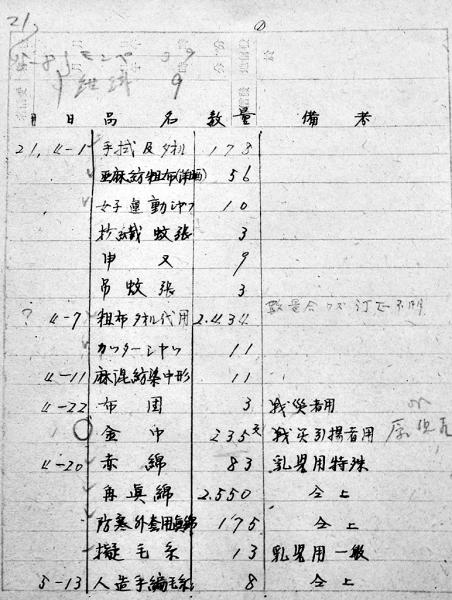 21.
9
月 日 品 名 数 量 備 考
21, 4-1 手拭及タオル 178
亜麻紡粗布 56
女子運動シャツ 10
抄繊蚊張 3
申又 9
吊蚊張 3
? 4-7 粗布タオル代用 2.434 数量合ワズ訂正不明
カッターシャツ 11
4-11 麻混紡染中形 11
4-22 布団 3 戦災者用
金巾 235 戦災引揚者用
4-20 赤綿 83 乳児用特殊
再真綿 2.550 仝上
防寒外套用真綿 175 仝上
擬毛糸 13 乳児用一般
5-13 人造手編毛糸 8 仝上